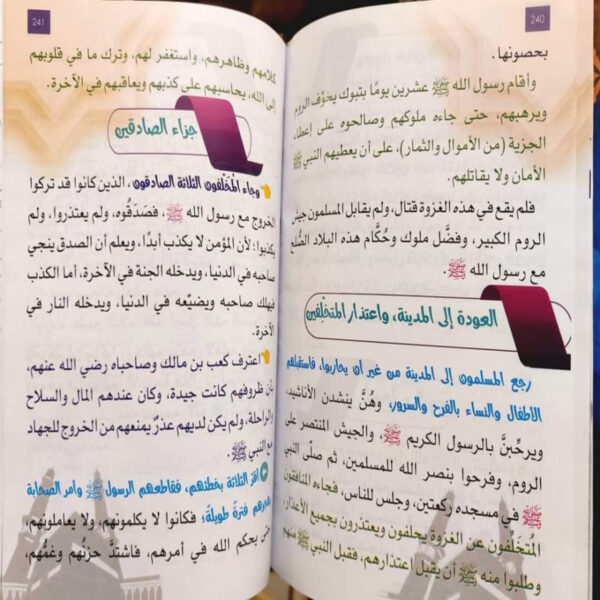 240
بحصونها.
وأقام رسول الله ﷺ عشرين يومًا بتبوك يخوِّف الروم
ويرهبهم، حتى جاءه ملوكهم وصالحوه على إعطاء
الجزية (من الأموال والثمار)، على أن يعطيهم النبي ﷺ
الأمان ولا يقاتلهم.
فلم يقع في هذه الغزوة قتال، ولم يقابل المسلمون جيش
الروم الكبير، وفضَّل ملوك وحُكَّام هذه البلاد الصُّلح
مع رسول الله ﷺ.
العودة إلى المدينة، واعتذار المتخلِّفين
رجع المسلمون إلى المدينة من غير أن يحاربوا، فاستقبلهم
الأطفال والنساء بالفرح والسرور، وهُنَّ ينشدن الأناشيد،
ويرحِّبنَّ بالرسول الكريم ﷺ، والجيش المنتصر على
الروم، وفرحوا بنصر الله للمسلمين، ثم صلّى النبي
ﷺ في مسجده ركعتين، وجلس للناس، فجاءه المنافقون
المُتخلِّفون عن الغزوة يحلفون ويعتذرون بجميع الأعذار،
وطلبوا منه ﷺ أن يقبل اعتذارهم، فقبل النبي ﷺ منهم
241
كلامهم وظاهرهم، واستغفر لهم، وترك ما في قلوبهم
إلى الله، يحاسبهم على كذبهم ويعاقبهم في الآخرة.
جزاء الصادقين
وجاء المُخلَّفون الثلاثة الصادقون، الذين كانوا قد تركوا
الخروج مع رسول الله ﷺ، فصَدَقُوه، ولم يعتذروا، ولم
يكذبوا؛ لأن المؤمن لا يكذب أبدًا، ويعلم أن الصدق ينجي
صاحبه في الدنيا، ويدخله الجنة في الآخرة، أما الكذب
فيهلك صاحبه ويضيّعه في الدنيا، ويدخله النار في
الآخرة.
اعترف كعب بن مالك وصاحباه رضي الله عنهم،
بأن ظروفهم كانت جيدة، وكان عندهم المال والسلاح
والراحلة، ولم يكن لديهم عذرٌ يمنعهم من الخروج للجهاد
مع النبي ﷺ.
أقرَّ الثلاثة بخطئهم، فقاطعهم الرسول ﷺ وأمر الصحابة
بهجرهم فترة طويلة؛ فكانوا لا يكلمونهم، ولا يعاملونهم،
حتى يحكم الله في أمرهم، فاشتدَّ حزنُهم وغمُّهم،